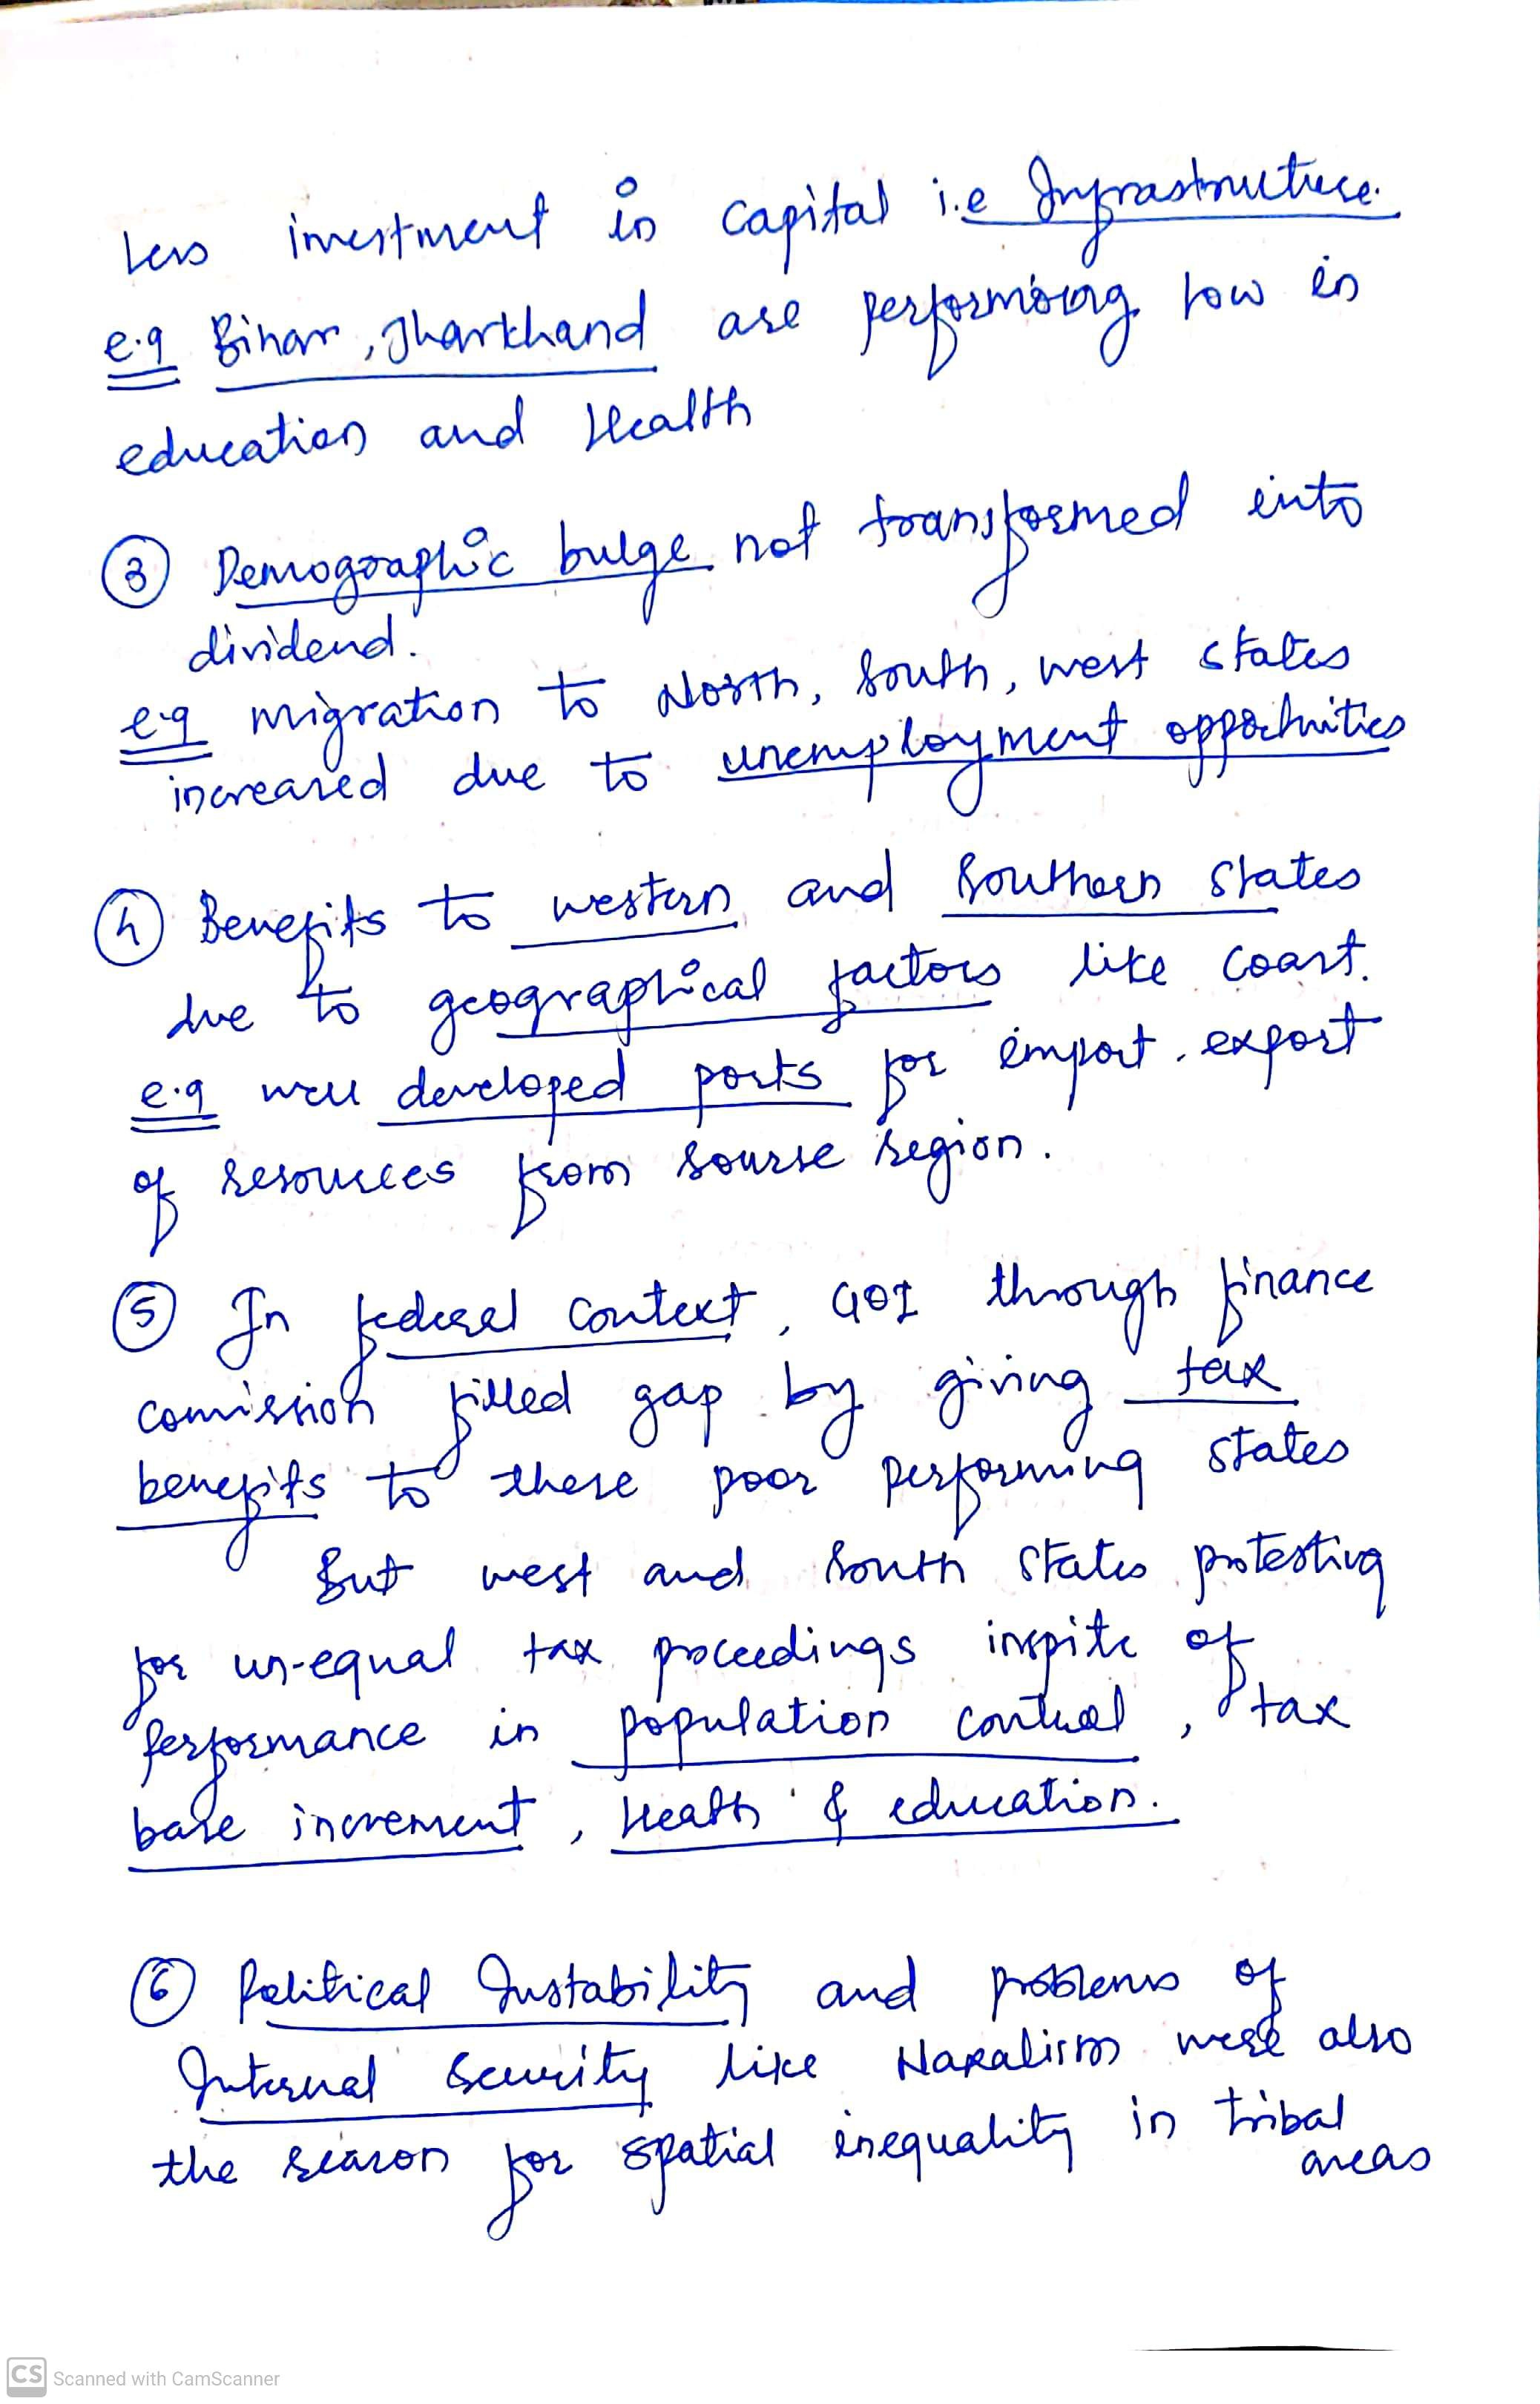 Less investment in capital i.e Infrastructure.
e.g Bihar, Jharkhand are performing low in
education and Health
③ Demographic bulge not transformed into
dividend.
e.g migration to North, South, west states
increased due to unemployment opportunities
④ Benefits to western and Southern States
due to geographical factors like coast.
e.g well developed ports for import, export
of resources from sourse region.
⑤ In federal context, GOI through finance
comission filled gap by giving tax
benefits to these poor performing states
But west and South States protesting
for un-equal tax proceedings inspite of
performance in population control, tax
base increment, Health & education.
⑥ Political Instability and problems of
Internal Security like Naxalism were also
the reason for spatial inequality in tribal
areas
CS Scanned with CamScanner